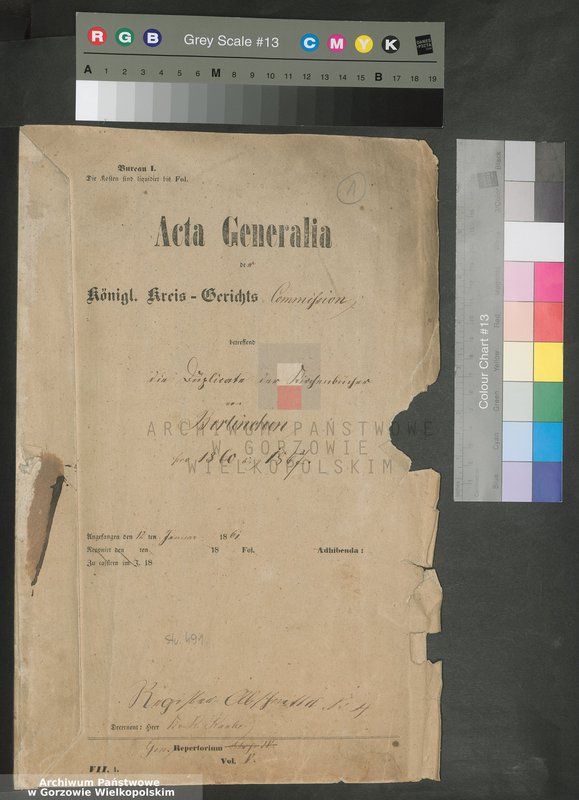 R G B Grey Scale #13 C M Y K
A 1 2 3 4 5 6 M 8 9 10 11 12 13 14 15 B 17 18 19
Colour Chart #13
Blue Cyan Green Yellow Red Magenta 3/Color Black
Bureau I.
Die Kosten sind liquidirt bis Fol.
1
Acta Generalia
der
Königl. Kreis-Gerichts Commission
betreffend
die Duplicate der Kirchenbücher
von
Berlinchen
pro 1860
ARCHIWUM PAŃSTWOWE
W GORZOWIE
WIELKOPOLSKIM
Angefangen den 12 ten Januar 1861
Reponirt den ten 18 Fol. Adhibenda:
Zu cassiren im J. 18
Str. 491
Abschnitt No 4
Decernent: Herr
Gen. Repertorium
Vol. V.
VII. 1.
Archiwum Państwowe
w Gorzowie Wielkopolskim